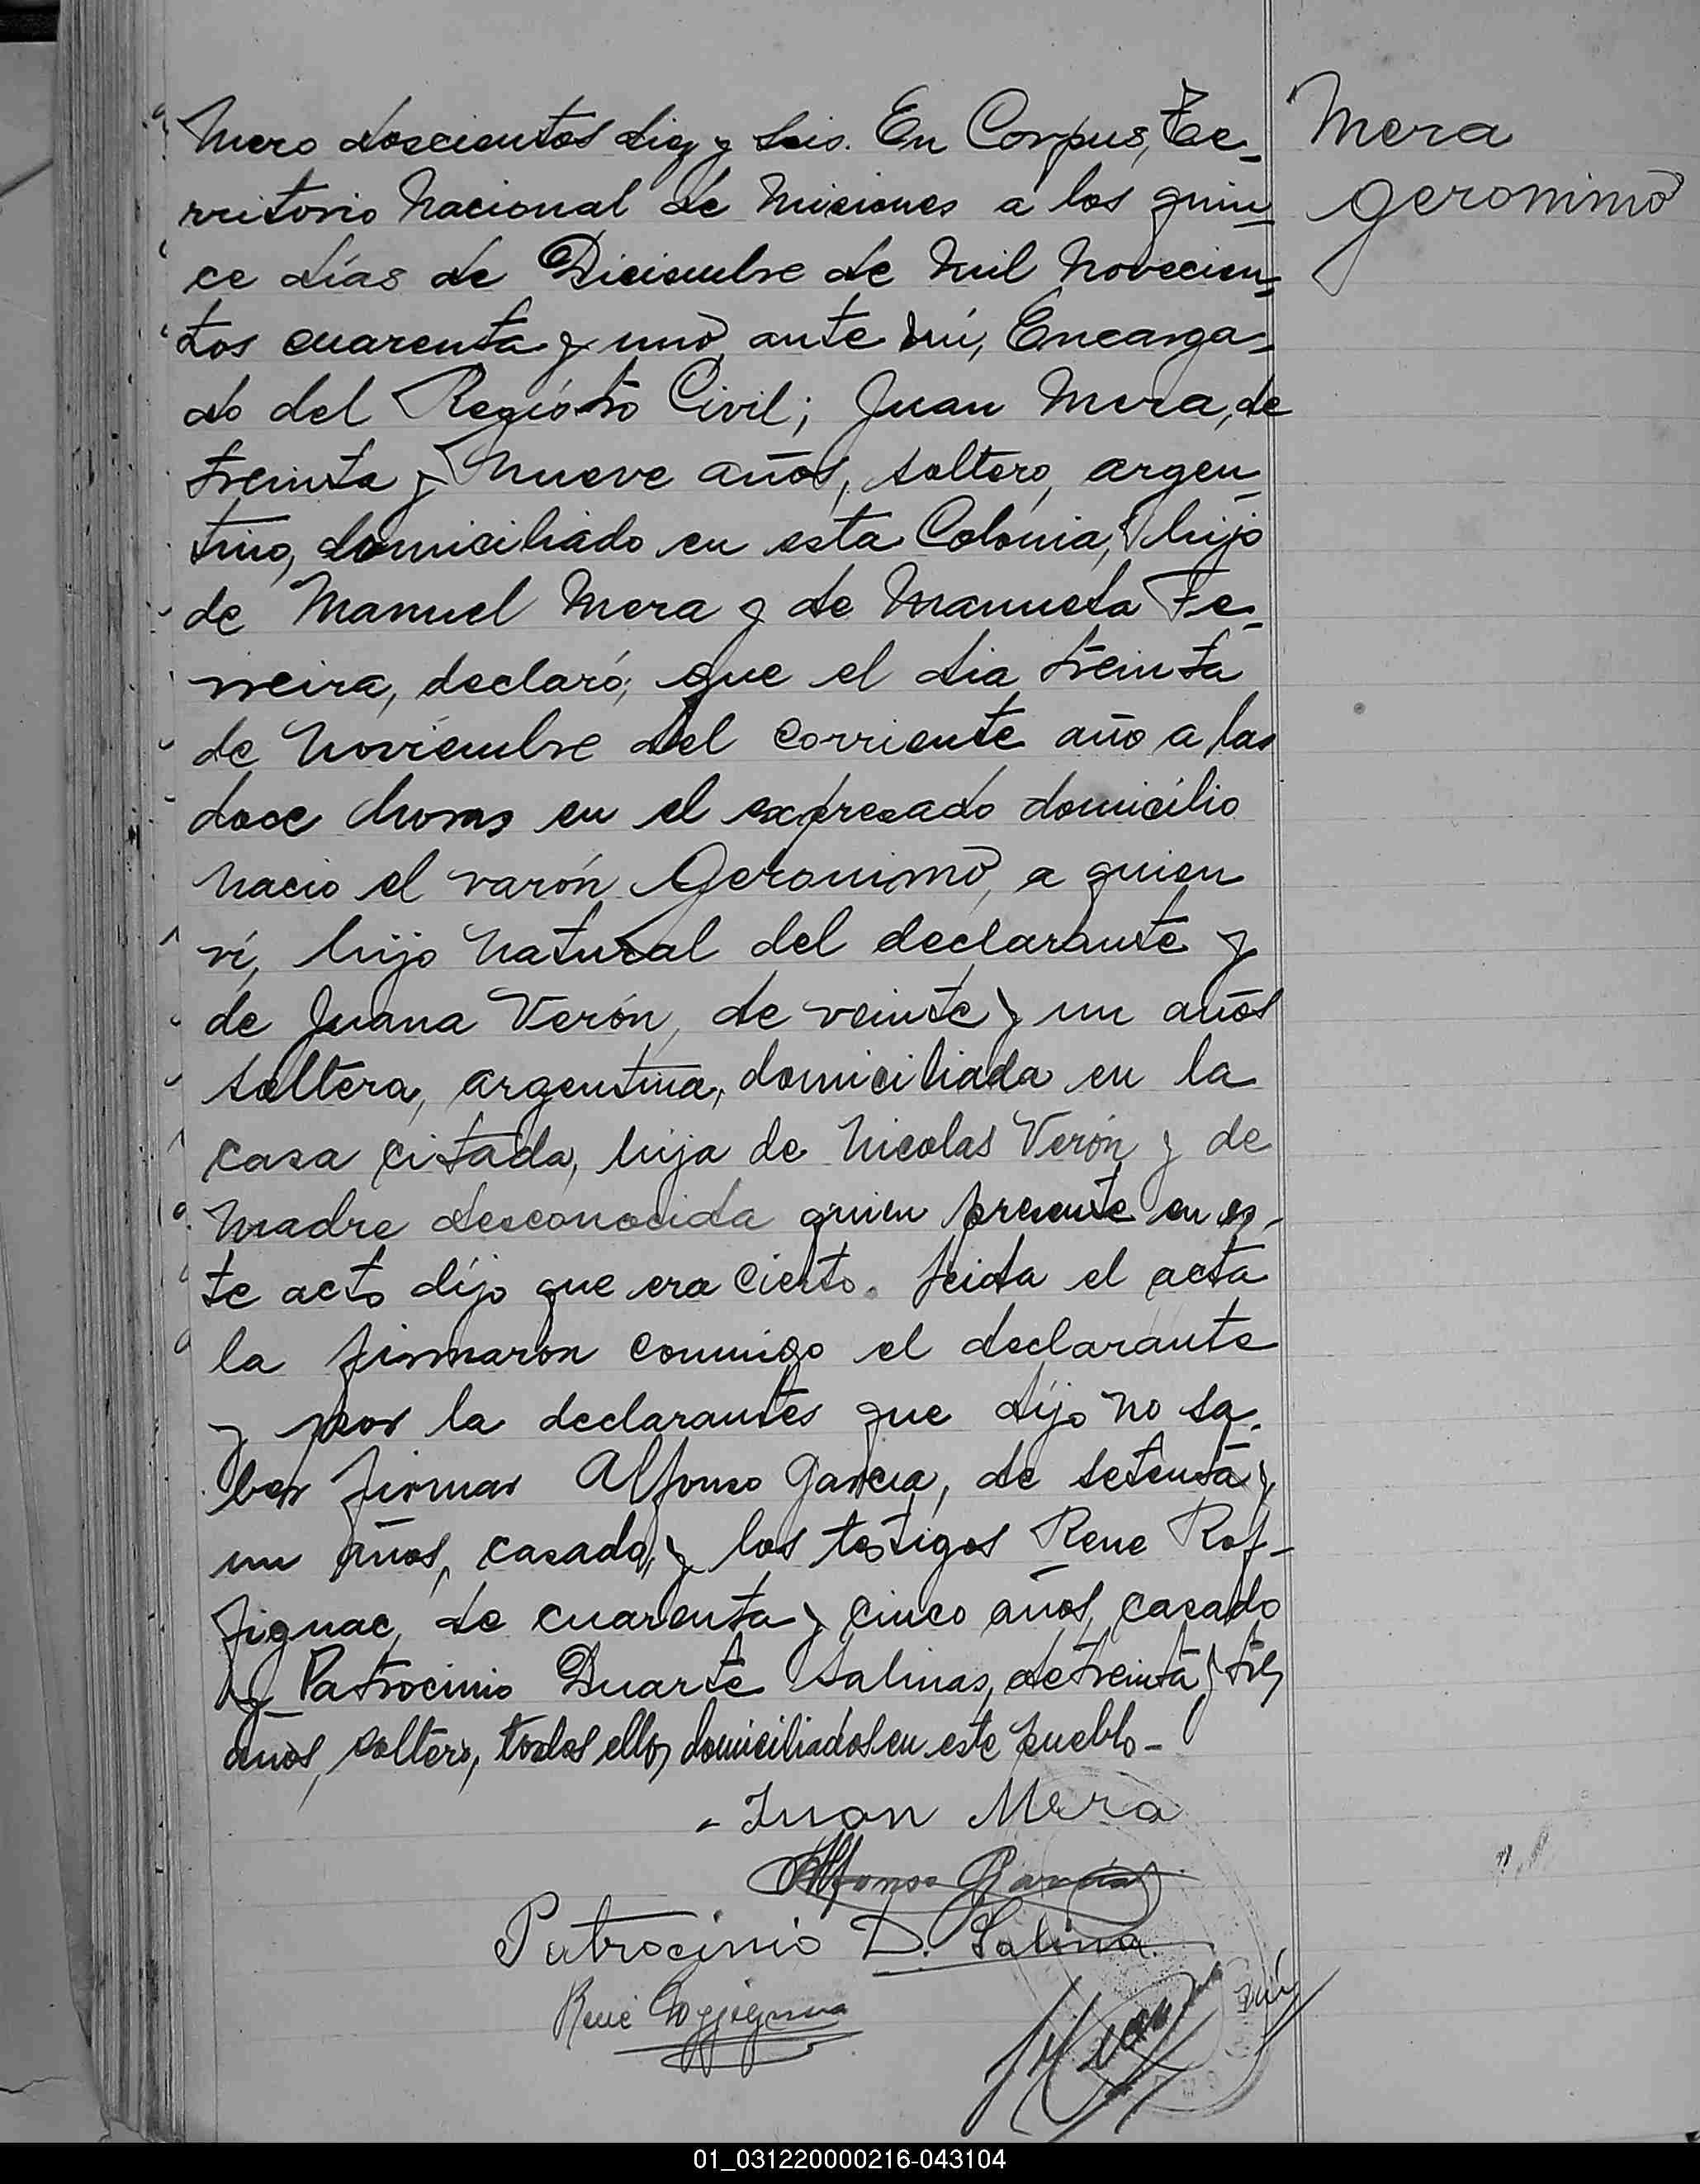 Mero doscientos diez y seis. En Corpus, Te-
rritorio Nacional de Misiones a los quin-
ce días de Diciembre de mil novecien-
tos cuarenta y uno, ante mí, Encarga-
do del Registro Civil; Juan Mera, de
treinta y nueve años, soltero, argen-
tino, domiciliado en esta Colonia, hijo
de Manuel Mera y de Manuela Fe-
rreira, declaró; que el dia treinta
de Noviembre del corriente año a las
doce horas en el expresado domicilio
nacio el varón Geronimo, a quien
ví, hijo natural del declarante y
de Juana Verón, de veinte y un años
soltera, argentina, domiciliada en la
casa citada, hija de Nicolas Verón y de
madre desconocida quien presente en es-
te acto dijo que era cierto. Leida el acta
la firmaron conmigo el declarante
y por la declarantes que dijo no sa-
ber firmar Alfonso Garcia, de setenta y
un años, casado, y los testigos Rene Rof-
fignac, de cuarenta y cinco años, casado
y Patrocinio Duarte Salinas, de treinta y tres
años, soltero, todos ellos domiciliados en este pueblo-
Mera
Geronimo
Juan Mera
Alfonso Garcia
Patrocinio D. Salina
René
01_031220000216-043104